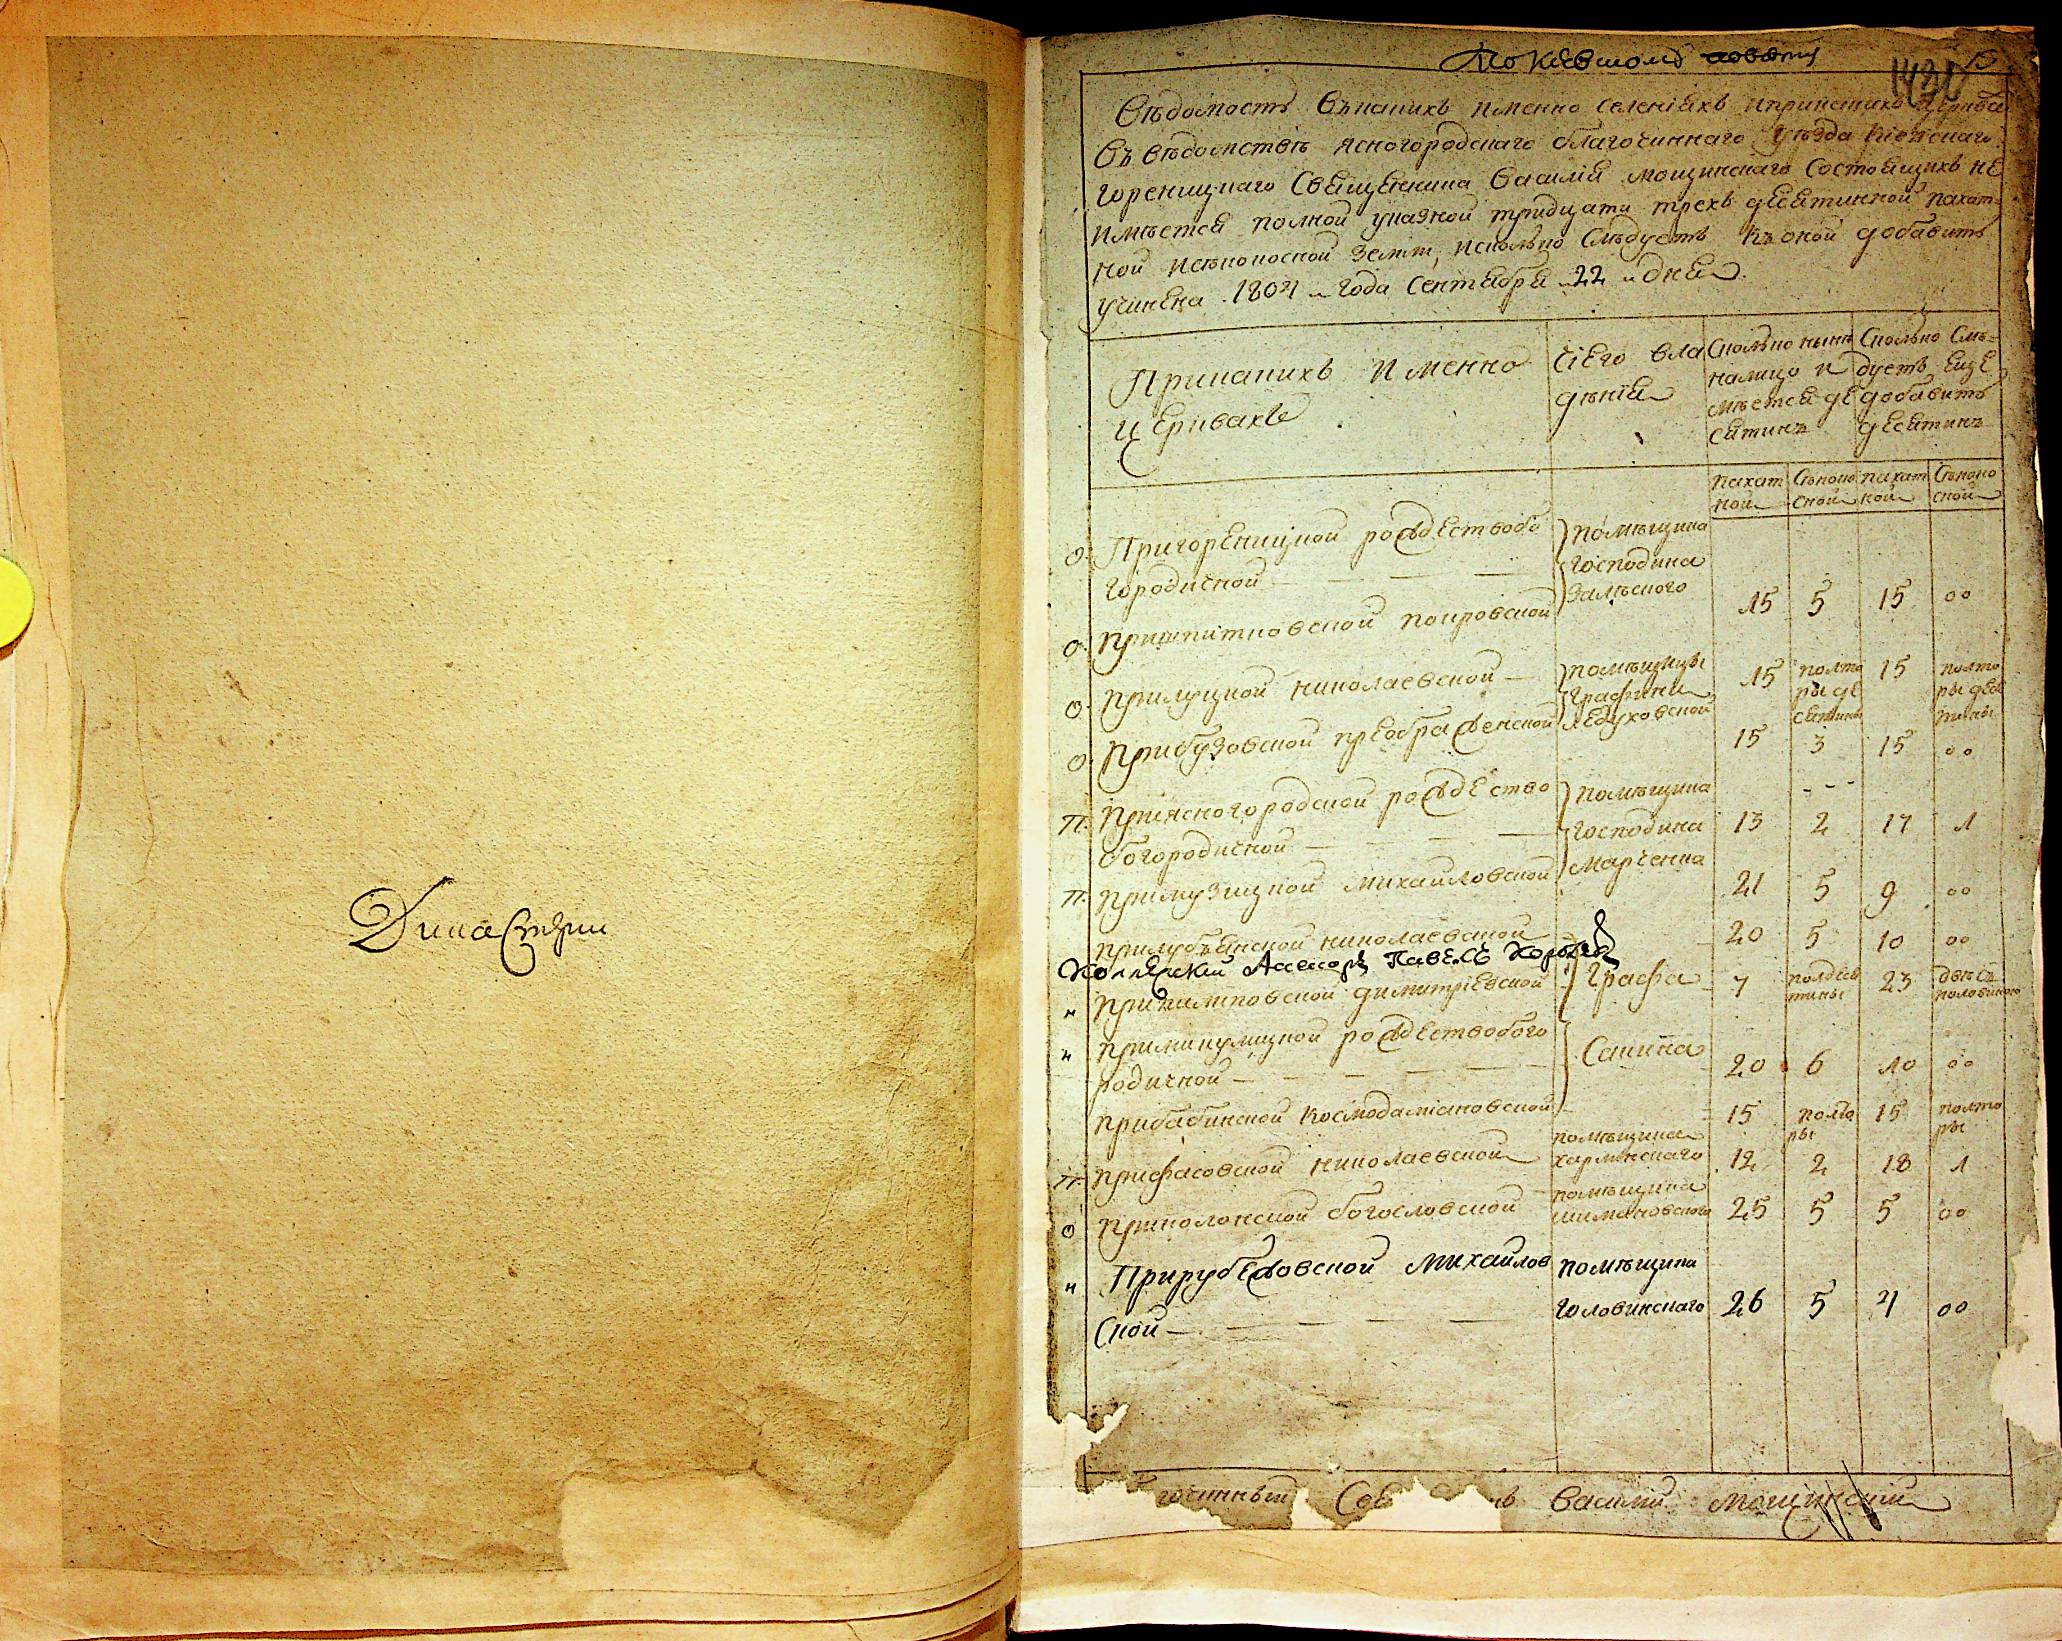 По Киевскому повету
Вѣдомость вкакихъ именно селенїяхъ иприкакихъ церква
въ вѣдомствѣ ясногородскаго благочиннаго уѣзда Кїевскаго
гореницкаго Священника Василїя мощинскаго состоящихъ не
имѣется полной указной тридцати трехъ десятинной пахат-
ной исѣнокосной земли, исколько слѣдуетъ къ оной добавить
учинена 1804 года сентября 22 дня
Прикакихъ именно
церквахъ
Сїего вла
дѣнїя
Сколько нынѣ
налицо и
мѣется де
сятинъ
Сколько слѣ-
дуетъ еще
добавить
десятинъ
пахат
ной
Сѣноко
сной
пахат
ной
Сѣноко
сной
о. Пригореницкой рождествобо
городичной
помѣщика
господина
Залѣского
15 5 15 00
о. пришпитковской покровской
15 полто
ры де
сятины
15 полто
ры деся
тины
о. прилуцкой николаевской
помѣщицы
графини
ледуховской
о. прибузовской преображенской
15 3 15 00
п. приясногородской рождество
богородичной
помѣщика
господина
марченка
13 2 17 1
п. примузицкой михайловской
21 5 9 00
николаевской
20 5 10 00
Коллежский Ассесоръ Павелъ
димитрїевской
графа
7 полдеся
тины
23 двѣ съ
половиною
н примикулицкой рождествобого
родичной
20 6 10 00
прибабинской космодамїановской
15 полто
ры
15 полто
ры
п. прифасовской николаевской
помѣщика
12 2 18 1
о приколонской богословской
помѣщика
25 5 5 00
н Прирубежовской михайлов
ской
помѣщика
головинскаго
26 5 4 00
гочинный Василїй мощинскїй